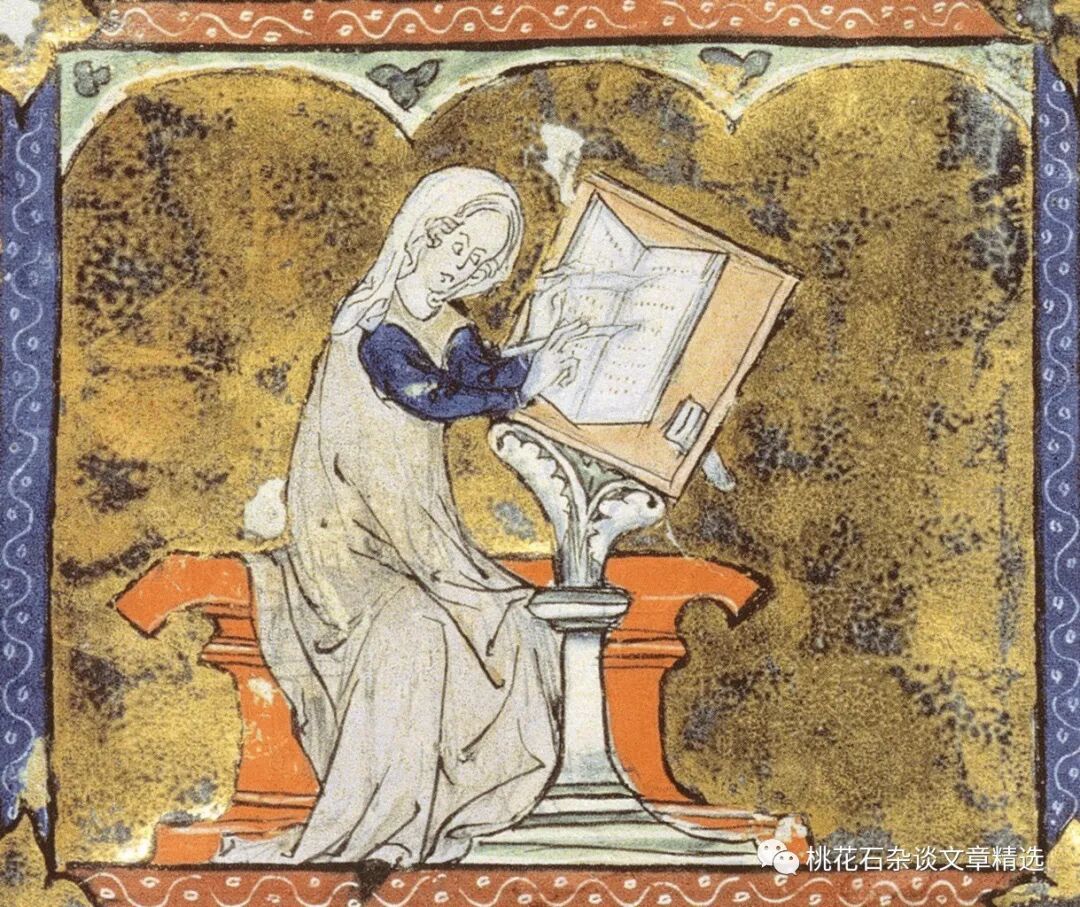 桃花石杂谈文章精选